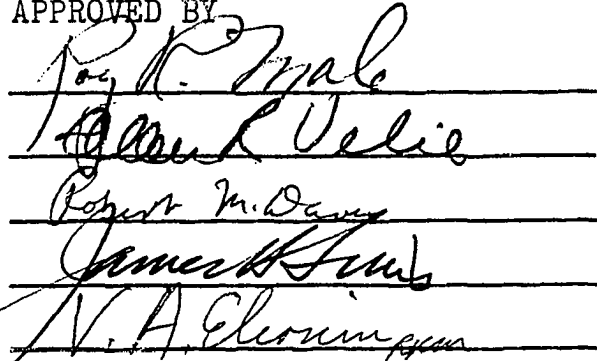 APPROVED BY
Roy R. Male
Alan R Velie
Robert M. Davis
James H. Sims
V. A. Elconin